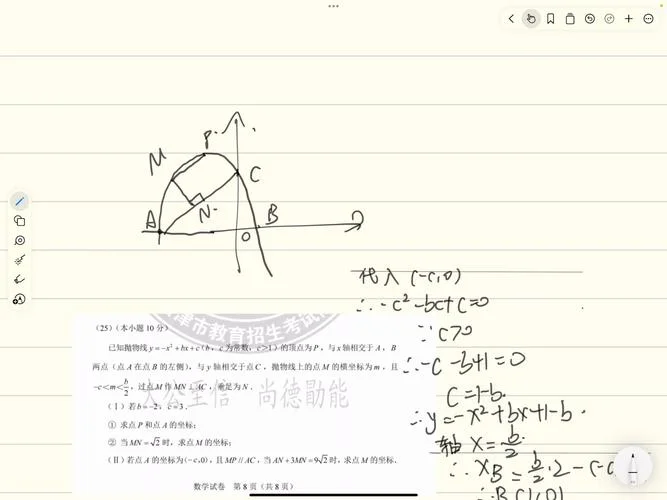 P
M
C
A
N
B
O
代入(-c,0)
∴-c²-bc+c=0
∵c>0
∴-c-b+1=0
c=1-b.
∴y=-x²+bx+1-b.
轴 x=b/2
∴x_B=b/2·2-(-c)
∴B(1,0)
津市教育招生考试院
大公至信 尚德勋能
(25)(本小题10分)
已知抛物线y=-x²+bx+c(b,c为常数,c>1)的顶点为P,与x轴相交于A,B
两点(点A在点B的左侧),与y轴相交于点C,抛物线上的点M的横坐标为m,且
-c<m<b/2,过点M作MN⊥AC,垂足为N.
(Ⅰ)若b=-2,c=3.
①求点P和点A的坐标;
②当MN=√2时,求点M的坐标;
(Ⅱ)若点A的坐标为(-c,0),且MP//AC,当AN+3MN=9√2时,求点M的坐标.
数学试卷 第8页(共8页)